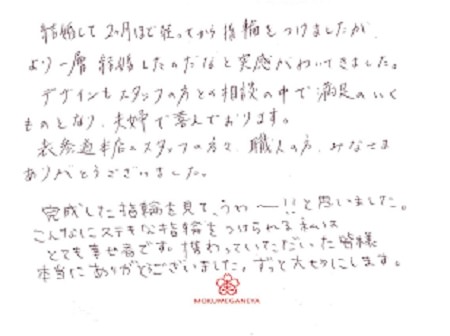 結婚して2ヶ月ほど経ってから指輪をつけましたが、
より一層結婚したのだなと実感がわいてきました。
デザインもスタッフの方との相談の中で満足のいく
ものとなり、夫婦で喜んでおります。
表参道本店のスタッフの方々、職人の方、みなさま
ありがとうございました。
完成した指輪を見て、うわ〜!!と思いました。
こんなにステキな指輪をつけられる私は
とても幸せ者です。携わっていただいた皆様
本当にありがとうございました。ずっと大切にします。
MOKUMEGANEYA